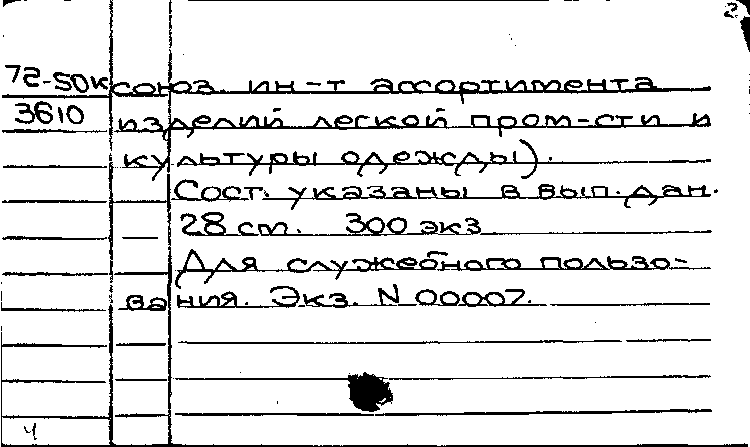 2
72-50к союз. ин-т ассортимента
3610 изделий легкой пром-сти и
культуры одежды).
Сост. указаны в вып. дан.
28 см. 300 экз
Для служебного пользо-
вания. Экз. N 00007.
ч